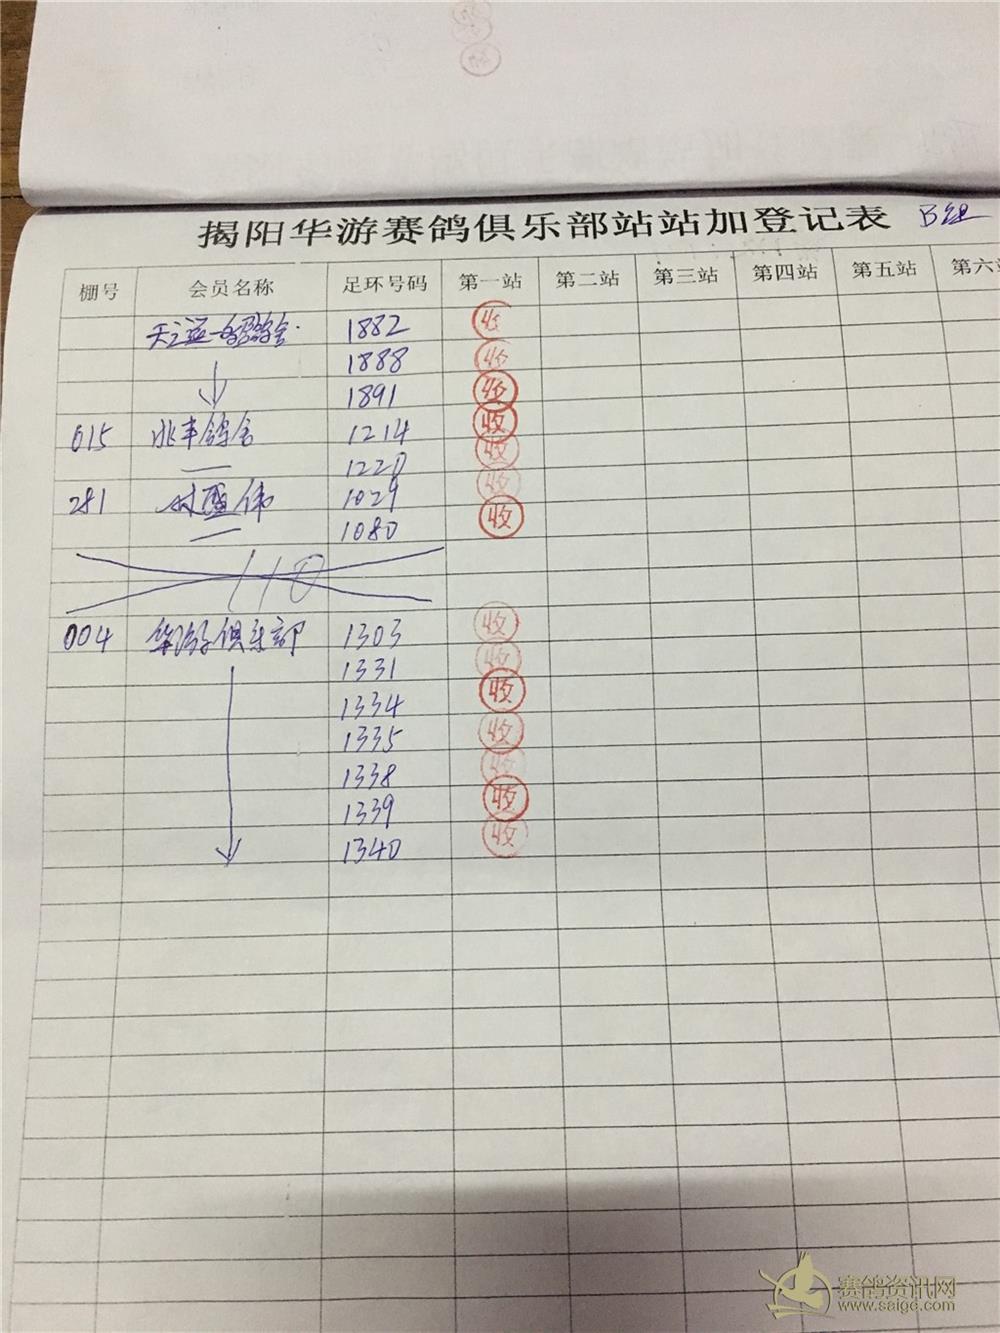 揭阳华游赛鸽俱乐部站站加登记表 B组
棚号 会员名称 足环号码 第一站 第二站 第三站 第四站 第五站 第六
1882 收
1888 收
1891 收
015 兆丰鸽舍 1214 收
1220 收
281 伟 1029 收
1080 收
110
004 华游俱乐部 1303 收
1331 收
1334 收
1335 收
1338 收
1339 收
1340 收
赛鸽资讯网
www.saige.com